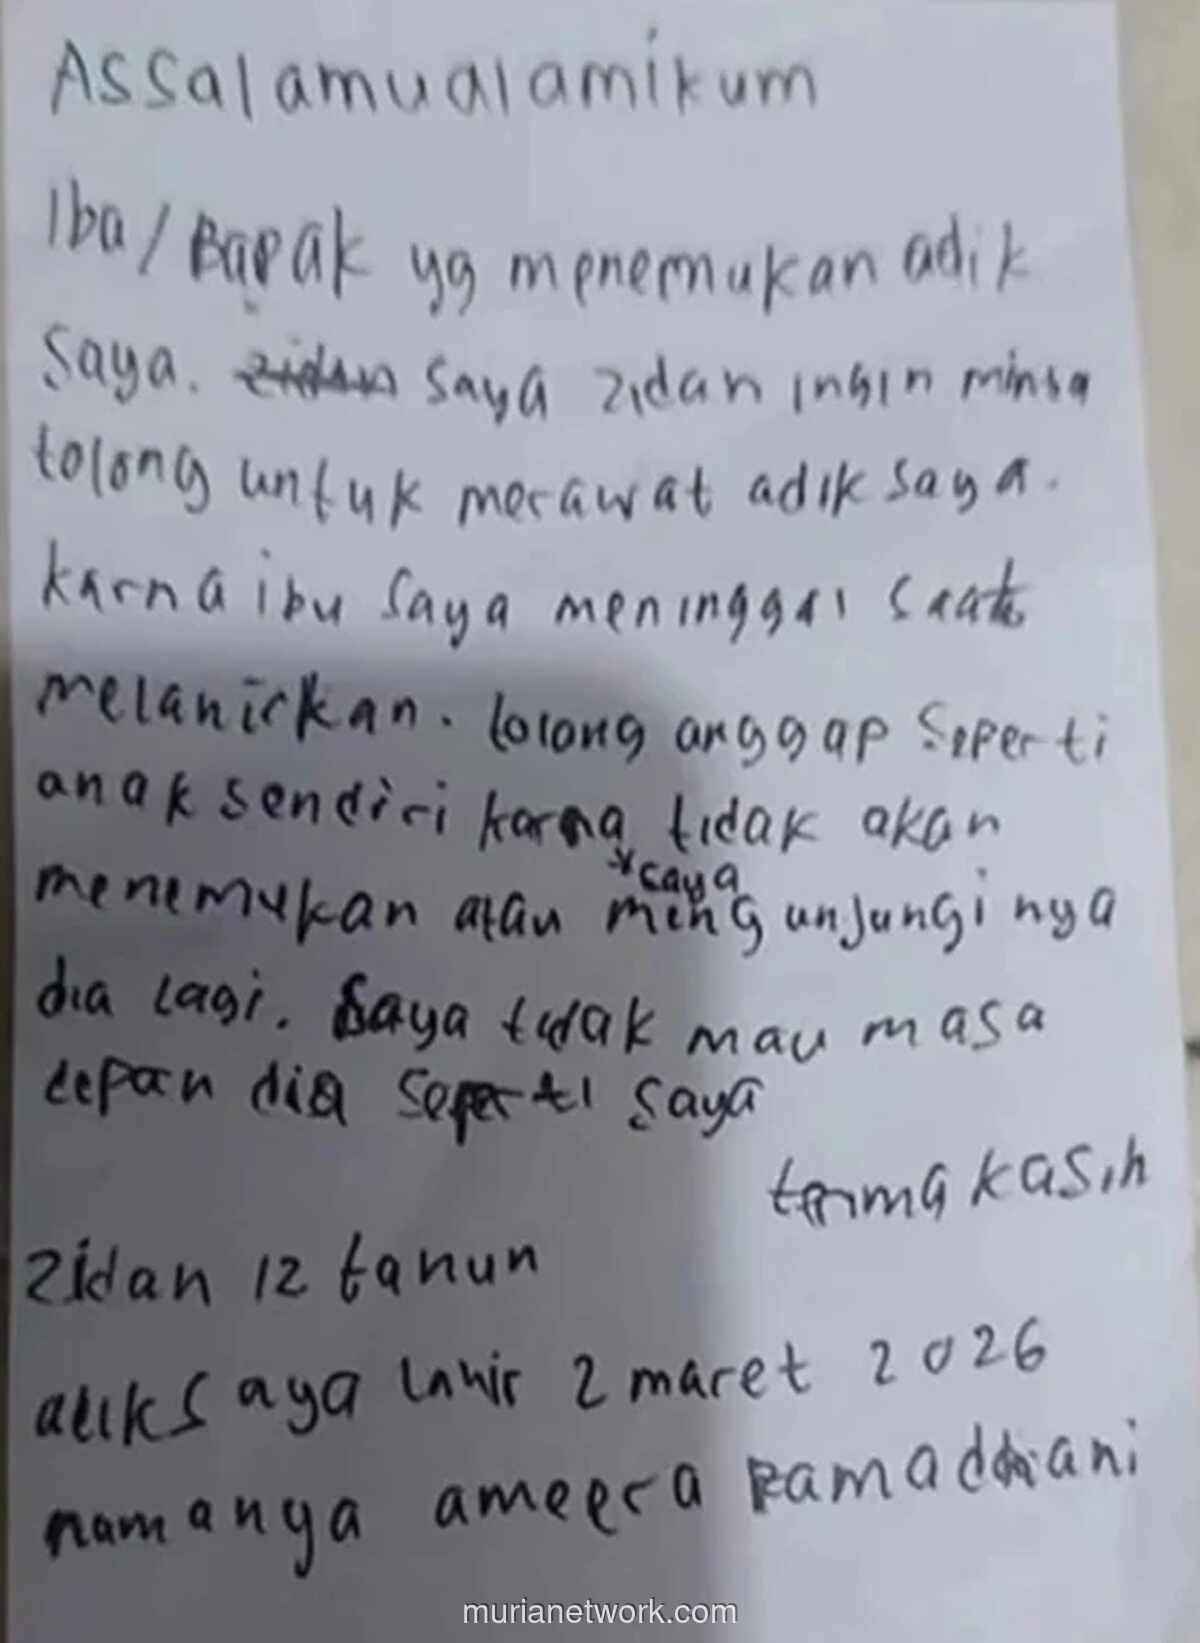 Assalamualamikum
Iba/Bapak yg menemukan adik
saya. zidan saya zidan ingin minta
tolong untuk merawat adik saya.
karna ibu saya meninggal saat
melanirkan. tolong anggap seperti
anak sendiri karna tidak akan
*saya
menemukan atau mengunjungi nya
dia lagi. Saya tidak mau masa
depan dia seperti saya
terima kasih
zidan 12 tahun
adik saya lahir 2 maret 2026
namanya ameera ramadhani
murianetwork.com